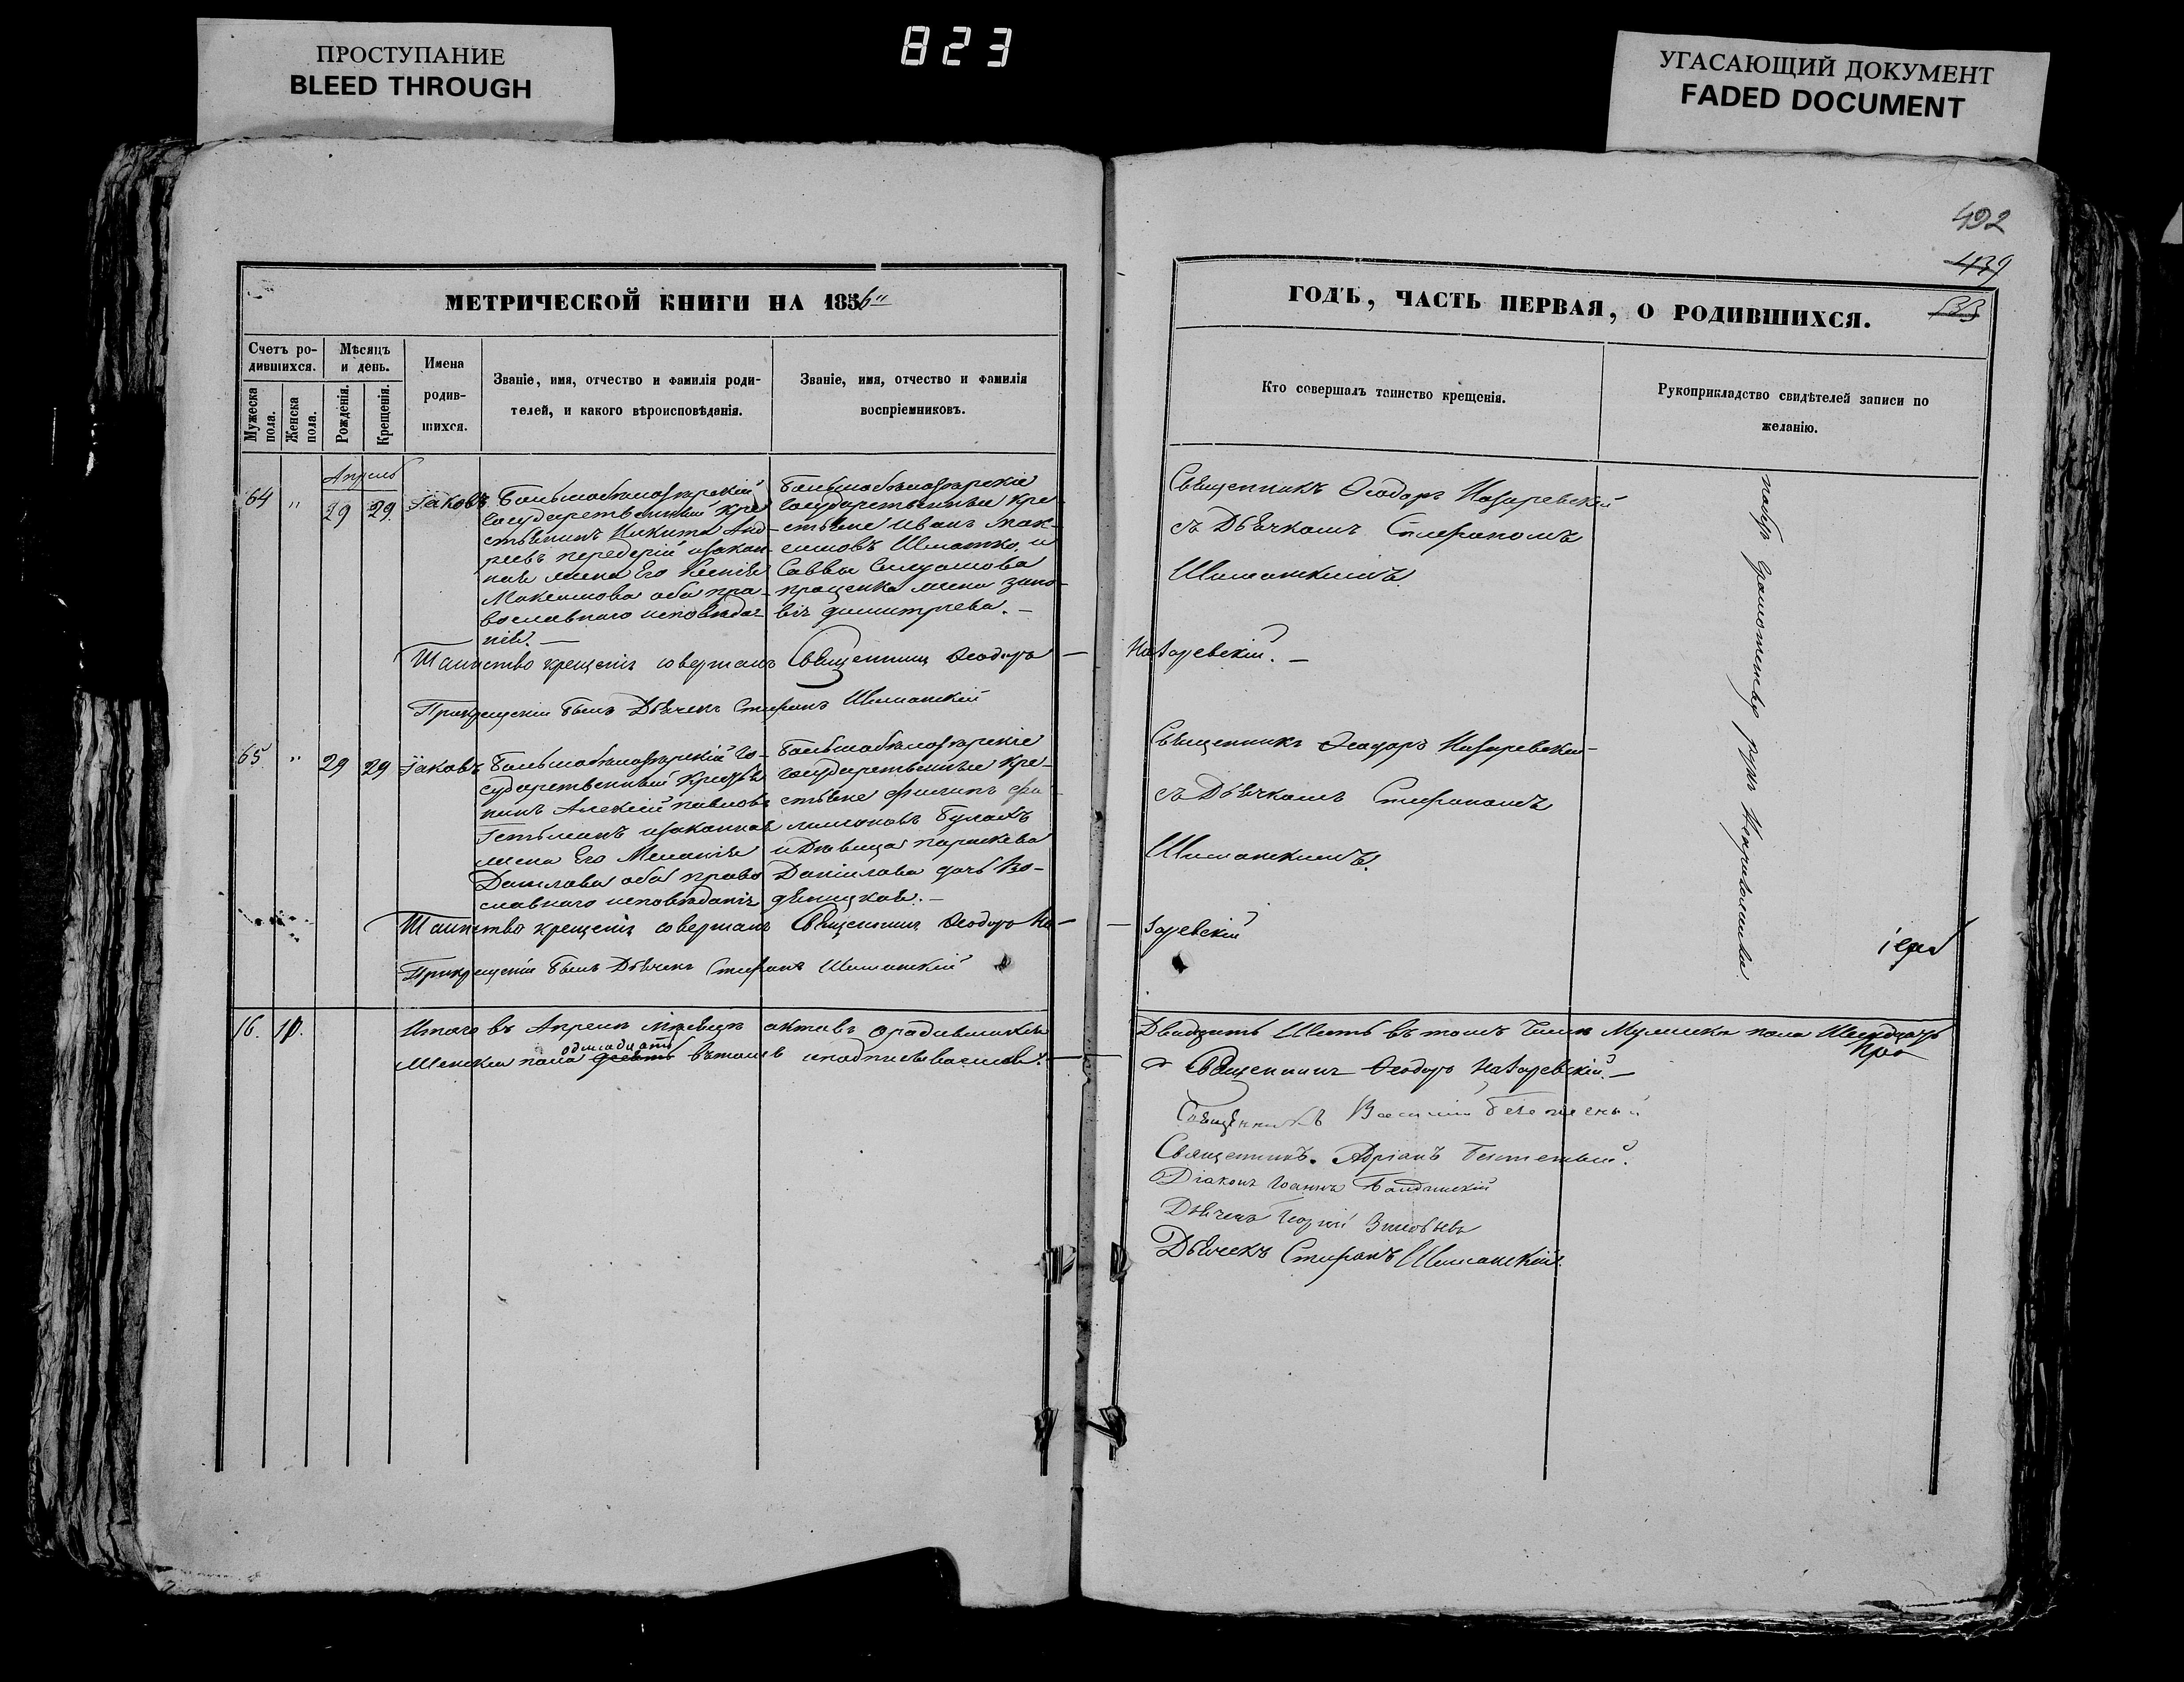 ПРОСТУПАНИЕ
BLEED THROUGH
823
УГАСАЮЩИЙ ДОКУМЕНТ
FADED DOCUMENT
492
439
МЕТРИЧЕСКОЙ КНИГИ НА 1856
ГОДЪ, ЧАСТЬ ПЕРВАЯ, О РОДИВШИХСЯ.
Счетъ ро-
дившихся.
Мужеска
пола.
Женска
пола.
Мѣсяцъ
и день.
Рожденія.
Крещенія.
Имена
родив-
шихся.
Званіе, имя, отчество и фамилія роди-
телей, и какого вѣроисповѣданія.
Званіе, имя, отчество и фамилія
воспріемниковъ.
Кто совершалъ таинство крещенія.
Рукоприкладство свидѣтелей записи по
желанію.
Апрель
64 " 29 29. Іаковъ
Государственный Кре
стьянинъ Никита Анд-
реевъ передерій изакон-
ная жена Его Ксенія
Максимова оба пра-
вославнаго исповѣда-
нія. —
Государственные Кре-
стьяне Иванъ Мак-
симовъ Шматко, и
Саввы
проценка жена Зино-
вія димитріева. —
Священникъ Ѳеодоръ Назаревскій
съ Дьячкомъ Стефаномъ
Шиманскимъ.
Таинство крещенія совершалъ Священникъ Ѳеодоръ —
Назаревскій. —
Прикрещеніи былъ Дьячекъ Стефанъ Шиманскій
65 " 29 29 Іаковъ
сударственный Кресть
нинъ Алексій павловъ
Гетьманъ изаконная
жена Его Меланія
Данилова оба право
славнаго исповѣданія
государственные Кре-
стьяне филипъ фи
лимоновъ Булахъ
и Дѣвица параскева
Даніилова дочь Во-
Священникъ Ѳеодоръ Назаревскій
съ Дьячкомъ Стефаномъ
Шиманскимъ.
Таинство крещенія совершалъ Священникъ Ѳеодоръ На—
— заревскій
Прикрещеніи былъ Дьячекъ Стефанъ Шиманскій
16. 10.
Итого въ Апрелѣ мѣсяцѣ актовъ ородившихся
Двадцать Шесть въ томъ Числѣ Мужеска пола Шестнадцать
Женска пола десять вътомъ иподписываемся. —
Священникъ Ѳеодоръ Назаревскій. —
Священникъ Василій
Священникъ. Адріанъ
Діаконъ Іоаннъ
Дьячекъ Георгій Зиновьевъ
Дьячекъ Стефанъ Шиманскій.